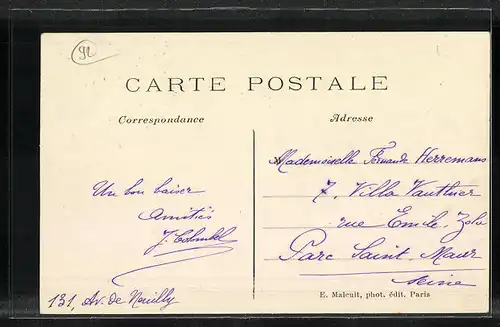 91
CARTE POSTALE
Correspondance
Adresse
Un bon baiser
Amitiés
J.
131, Av. de Neuilly
Mademoiselle Fernande Herremans
7, Villa Vauthier
rue Emile Zola
Parc Saint-Maur
Seine
E. Malcuit, phot. édit. Paris